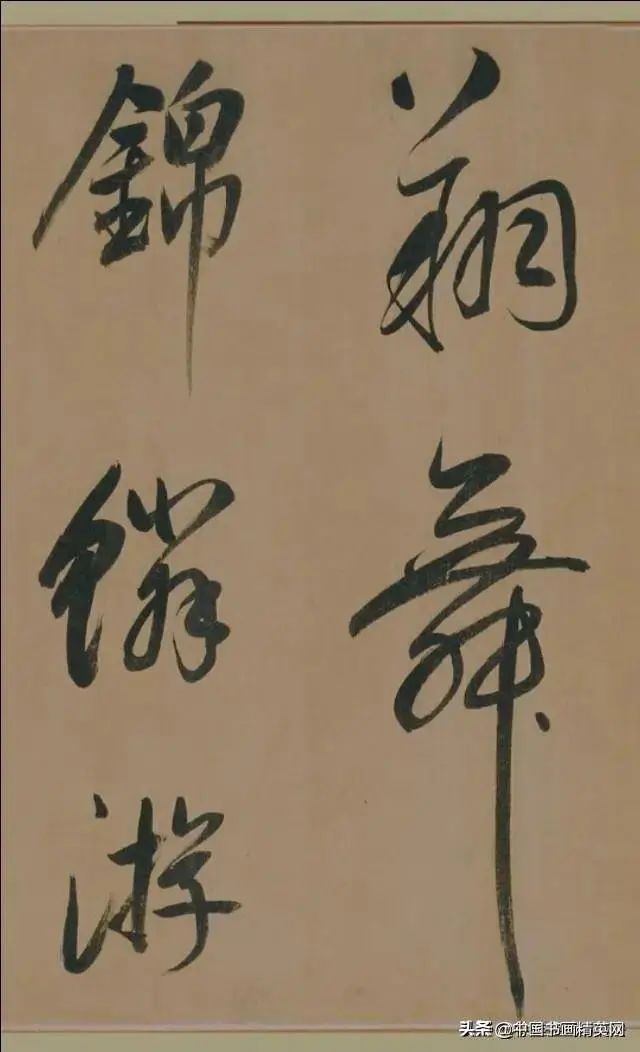 翔舞
錦鱗游
头条 @中国书画精英网